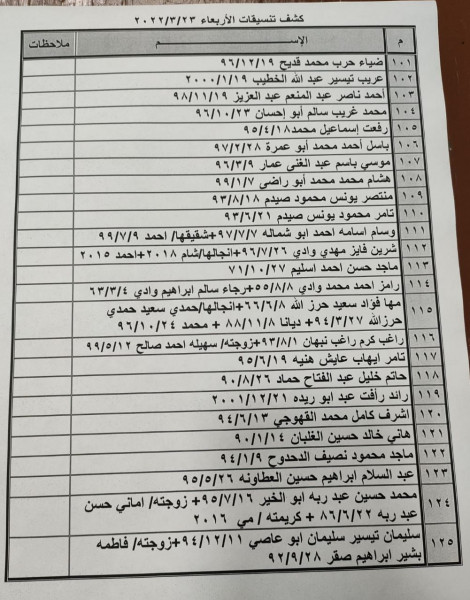 كشف تنسيقات الأربعاء ٢٠٢٢/٣/٢٣
م الإســـــم ملاحظات
١٠١ ضياء حرب محمد قديح ٩٦/١٢/١٩
١٠٢ عريب تيسير عبد الله الخطيب ٢٠٠٠/١/١٩
١٠٣ أحمد ناصر عبد المنعم عبد العزيز ٩٨/١١/١٩
١٠٤ محمد غريب سالم أبو إحسان ٩٦/١٠/٢٣
١٠٥ رفعت إسماعيل محمد٩٥/٤/١٨
١٠٦ باسل أحمد محمد أبو عمرة ٩٧/٢/٢٨
١٠٧ موسي باسم عبد الغنى عمار ٩٦/٣/٩
١٠٨ هشام محمد محمد أبو راضي ٩٩/١/٧
١٠٩ منتصر يونس محمود صيدم ٩٣/٨/١٨
١١٠ تامر محمود يونس صيدم ٩٣/٦/٢١
١١١ وسام اسامه احمد ابو شماله ٩٧/٧/٧+شقيقها/ احمد ٩٩/٧/٩
١١٢ شرين فايز مهدي وادي ٩٦/٧/٢٦+انجالها/شام ٢٠١٨+احمد ٢٠١٥
١١٣ ماجد حسن احمد اسليم ٧١/١٠/٢٧
١١٤ رامز احمد محمد وادي ٥٥/٨/٨+رجاء سالم ابراهيم وادي ٦٣/٣/٤
١١٥ مها فؤاد سعيد حرز الله ٦٦/٦/٨+انجالها/حمدي سعيد حمدي
حرزالله ٩٤/٣/٢٧+ ديانا ٨٨/١١/٨ + محمد ٩٦/١٠/٢٤
١١٦ راغب كرم راغب نبهان ٩٣/٨/١+زوجته/ سهيله احمد صالح ٩٩/٥/١٢
١١٧ تامر ايهاب عايش هنيه ٩٥/٦/١٩
١١٨ حاتم خليل عبد الفتاح حماد ٩٠/٨/٢٦
١١٩ رائد رافت عبد ابو ريده ٢٠٠١/١٢/٢١
١٢٠ اشرف كامل محمد القهوجي ٩٤/٦/١٣
١٢١ هاني خالد حسين الغلبان ٩٠/١/١٤
١٢٢ ماجد محمود نصيف الدحدوح ٩٤/١/٩
١٢٣ عبد السلام ابراهيم حسين العطاونه ٩٥/٥/٢٦
١٢٤ محمد حسين عبد ربه أبو الخير ٩٥/٧/١٦+ زوجته/ اماني حسن
عبد ربه ٨٦/٦/٢٢ + كريمته / مي ٢٠١٦
١٢٥ سليمان تيسير سليمان ابو عاصي ٩٤/١٢/١١+زوجته/ فاطمه
بشير ابراهيم صقر ٩٢/٩/٢٨